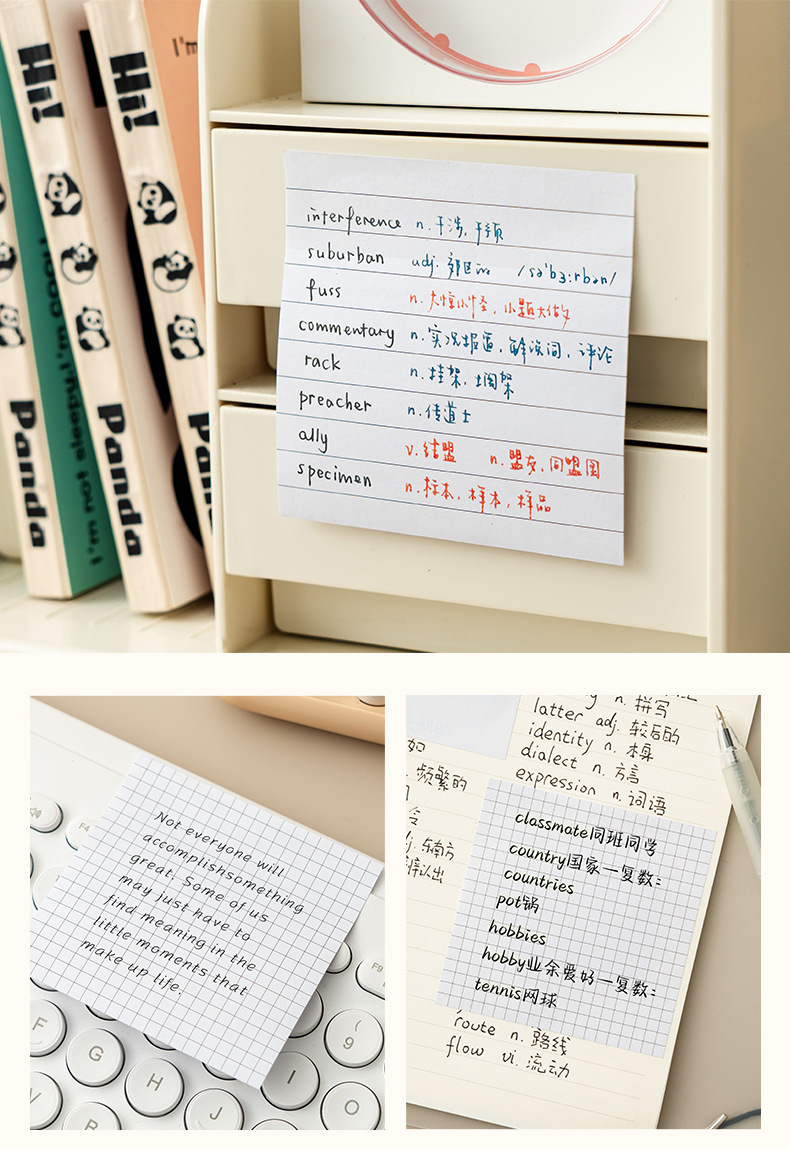 Hi!
Panda
I'm not sleepy, I'm
Hi!
Panda
I'm
interference n. 干涉, 干预
suburban adj. 郊区的 /sə'bɜ:rbən/
fuss n. 大惊小怪, 小题大做
commentary n. 实况报道, 解说词, 评论
rack n. 挂架, 搁架
preacher n. 传道士
ally v. 结盟 n. 盟友, 同盟国
specimen n. 标本, 样本, 样品
Not everyone will
accomplishsomething
great. Some of us
may just have to
find meaning in the
little moments that
make up life.
F4
F9
F
G
H
J
I
O
(
9
V
B
n. 拼写
latter adj. 较后的
identity n. 本身
dialect n. 方言
expression n. 词语
如
频繁的
令
东南方
辨认出
classmate同班同学
country国家一复数:
countries
pot锅
hobbies
hobby业余爱好一复数:
tennis网球
route n. 路线
flow vi. 流动